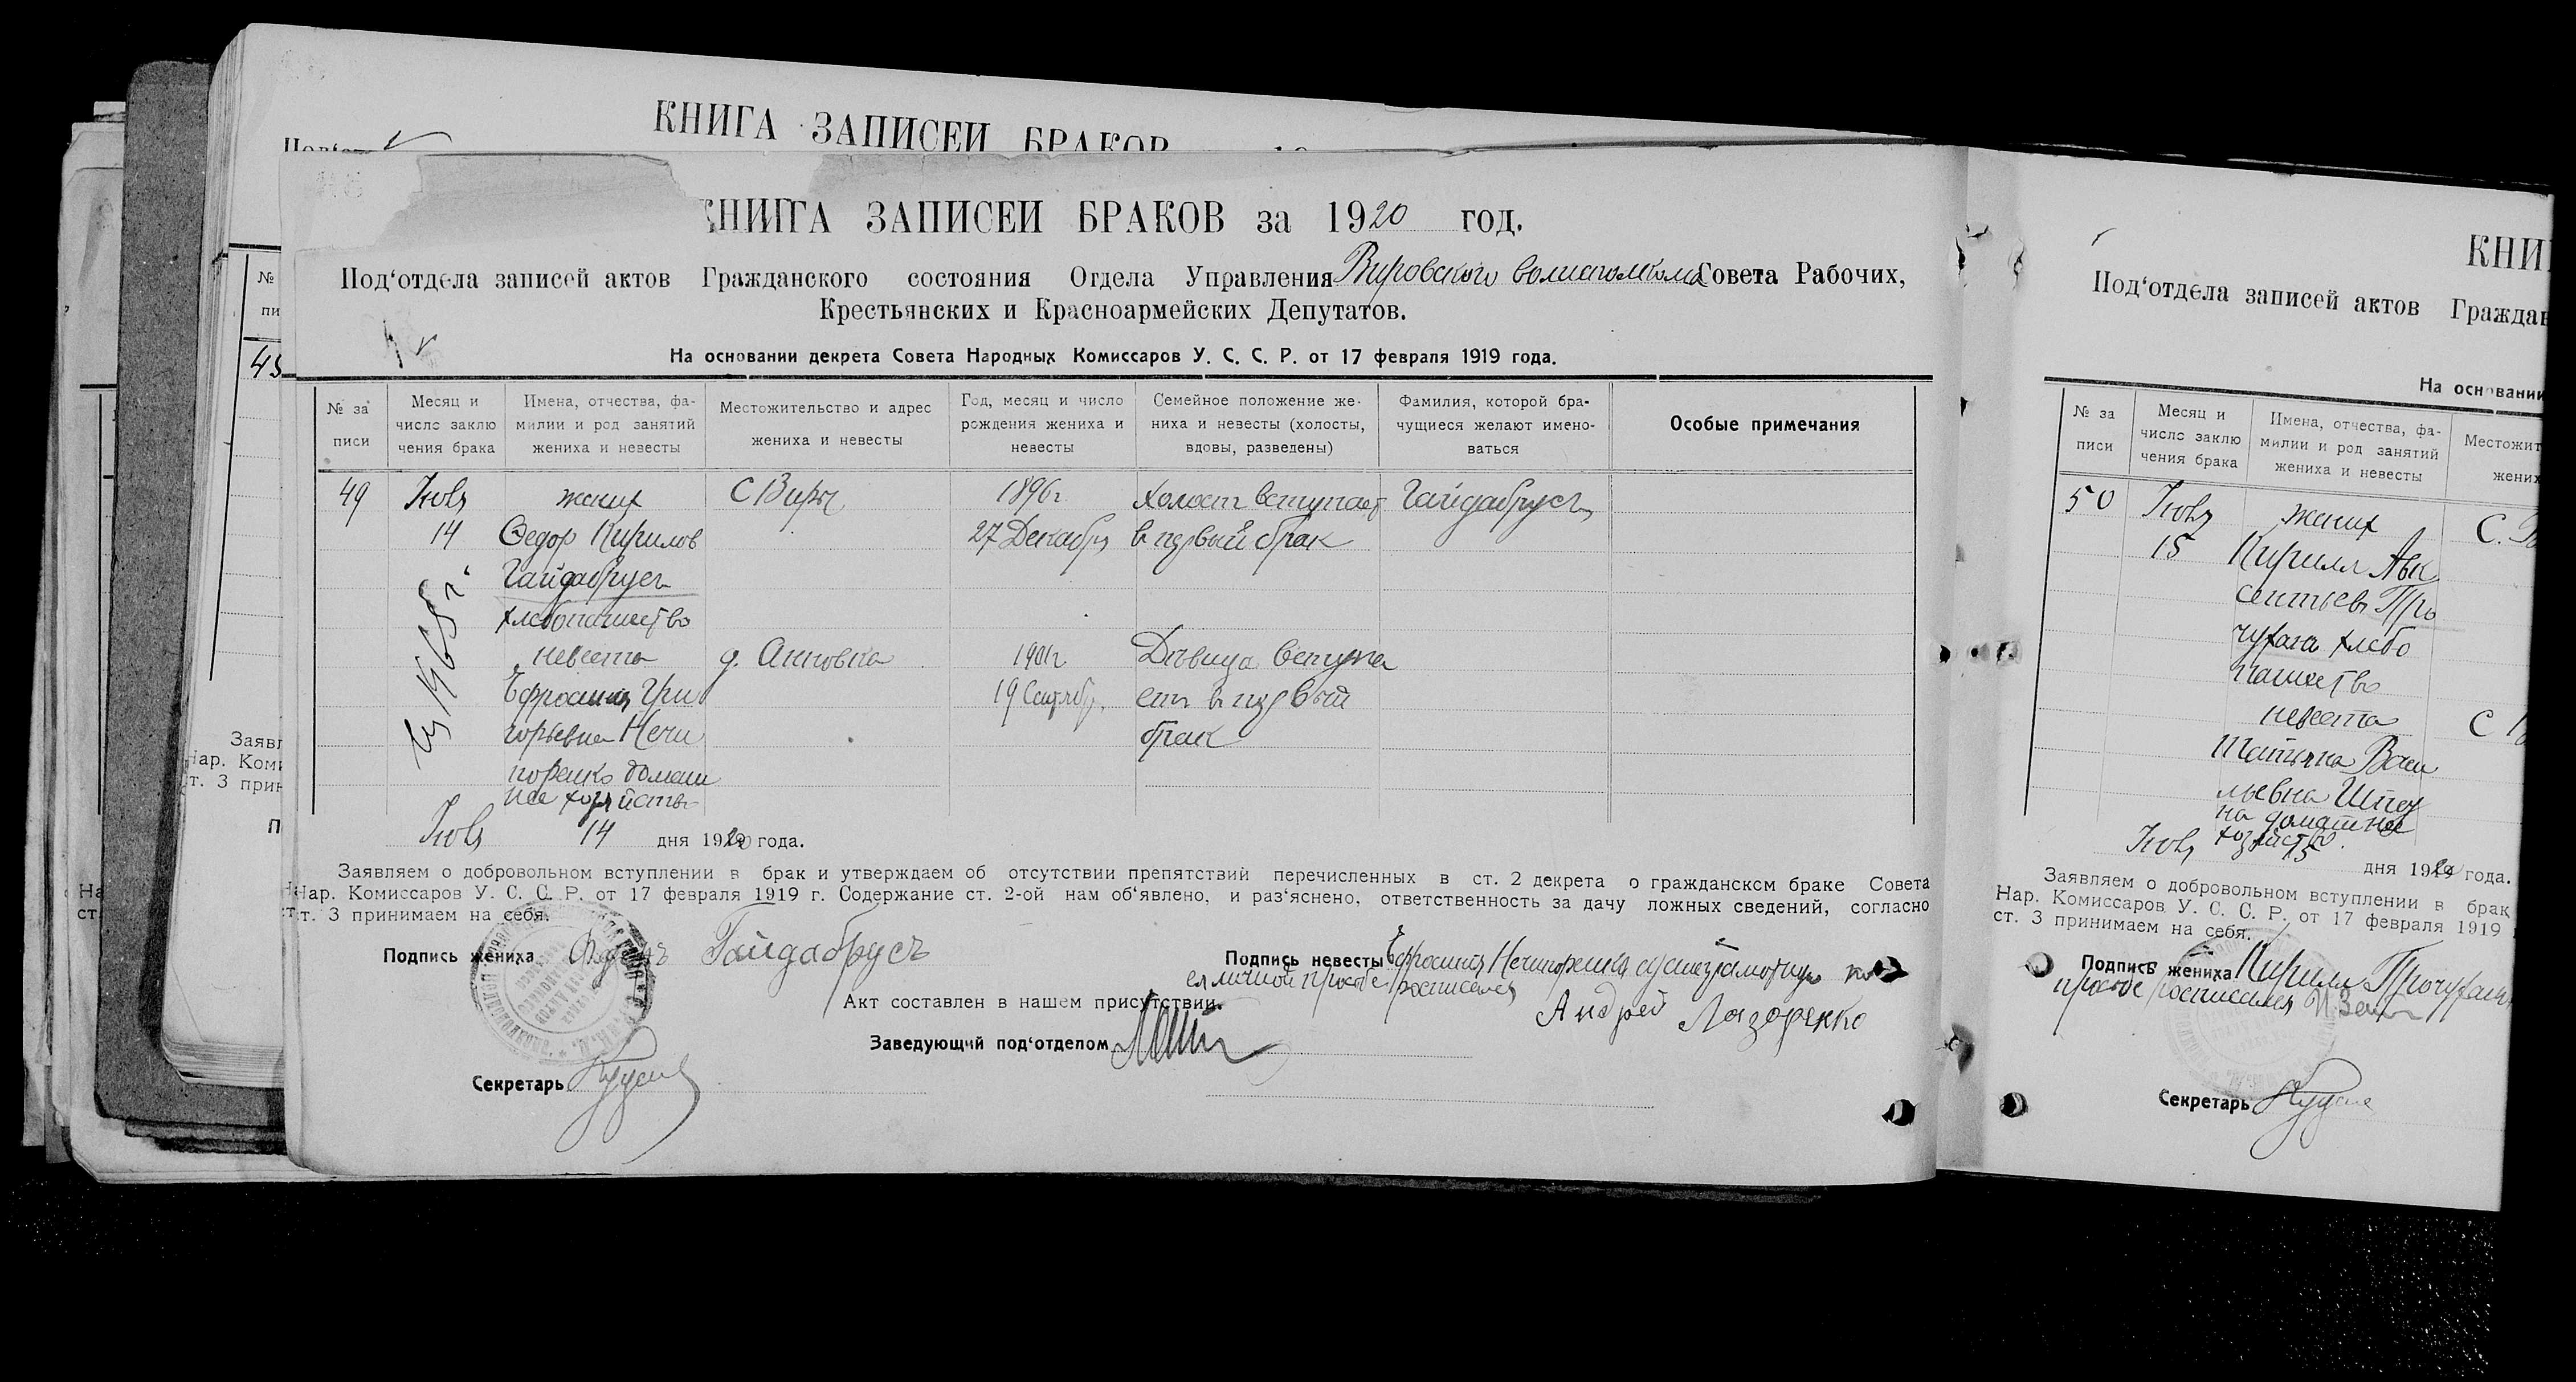 КНИГА ЗАПИСЕЙ БРАКОВ
КНИГА ЗАПИСЕЙ БРАКОВ за 1920 год.
Под‘отдела записей актов Гражданского состояния Отдела Управления Вировского волисполкома Совета Рабочих,
Крестьянских и Красноармейских Депутатов.
На основании декрета Совета Народных Комиссаров У. С. С. Р. от 17 февраля 1919 года.
№ за писи
Месяц и число заклю чения брака
Имена, отчества, фа- милии и род занятий жениха и невесты
Местожительство и адрес жениха и невесты
Год, месяц и число рождения жениха и невесты
Семейное положение же- ниха и невесты (холосты, вдовы, разведены)
Фамилия, которой бра- чущиеся желают имено- ваться
Особые примечания
49 Июля жених С Виры 1896г. холост вступает Гайдабрусъ
14 Федор Кирилов 27 Декабря в первый брак
Гайдабрусъ
хлебопашество
невеста д. Анновка 1901г. Девица вступа
Ефросиния Гри 19 Сентябр. етъ в первый
горьевна Нечи брак
поренко домаш
нее хозяйство
Июля 14 дня 1920 года.
Заявляем о добровольном вступлении в брак и утверждаем об отсутствии препятствий перечисленных в ст. 2 декрета о гражданском браке Совета
Нар. Комиссаров У. С. С. Р. от 17 февраля 1919 г. Содержание ст. 2-ой нам об‘явлено, и раз‘яснено, ответственность за дачу ложных сведений, согласно
ст. 3 принимаем на себя.
Подпись жениха Гайдабрусъ
Подпись невесты Ефросиния Нечипоренко а за неграмотную по
ея личной просьбе росписался
Андрей Лазоренко
Акт составлен в нашем присутствии.
Заведующий под‘отделом
Секретарь
КНИ
Под‘отдела записей актов Граждан
На основании
№ за писи
Месяц и число заклю чения брака
Имена, отчества, фа- милии и род занятий жениха и невесты
Местожит жених
50 Июля жених С.
15 Кирилл Авк
сентьев Про
чухана хлебо
пашество
невеста С
Татьяна Васи
льевна
на домашнее
хозяйство
Июля 15 дня 1920 года.
Заявляем о добровольном вступлении в брак
Нар. Комиссаров У. С. С. Р. от 17 февраля 1919
ст. 3 принимаем на себя.
Подпись жениха Кирилл
просьбе росписался
Секретарь